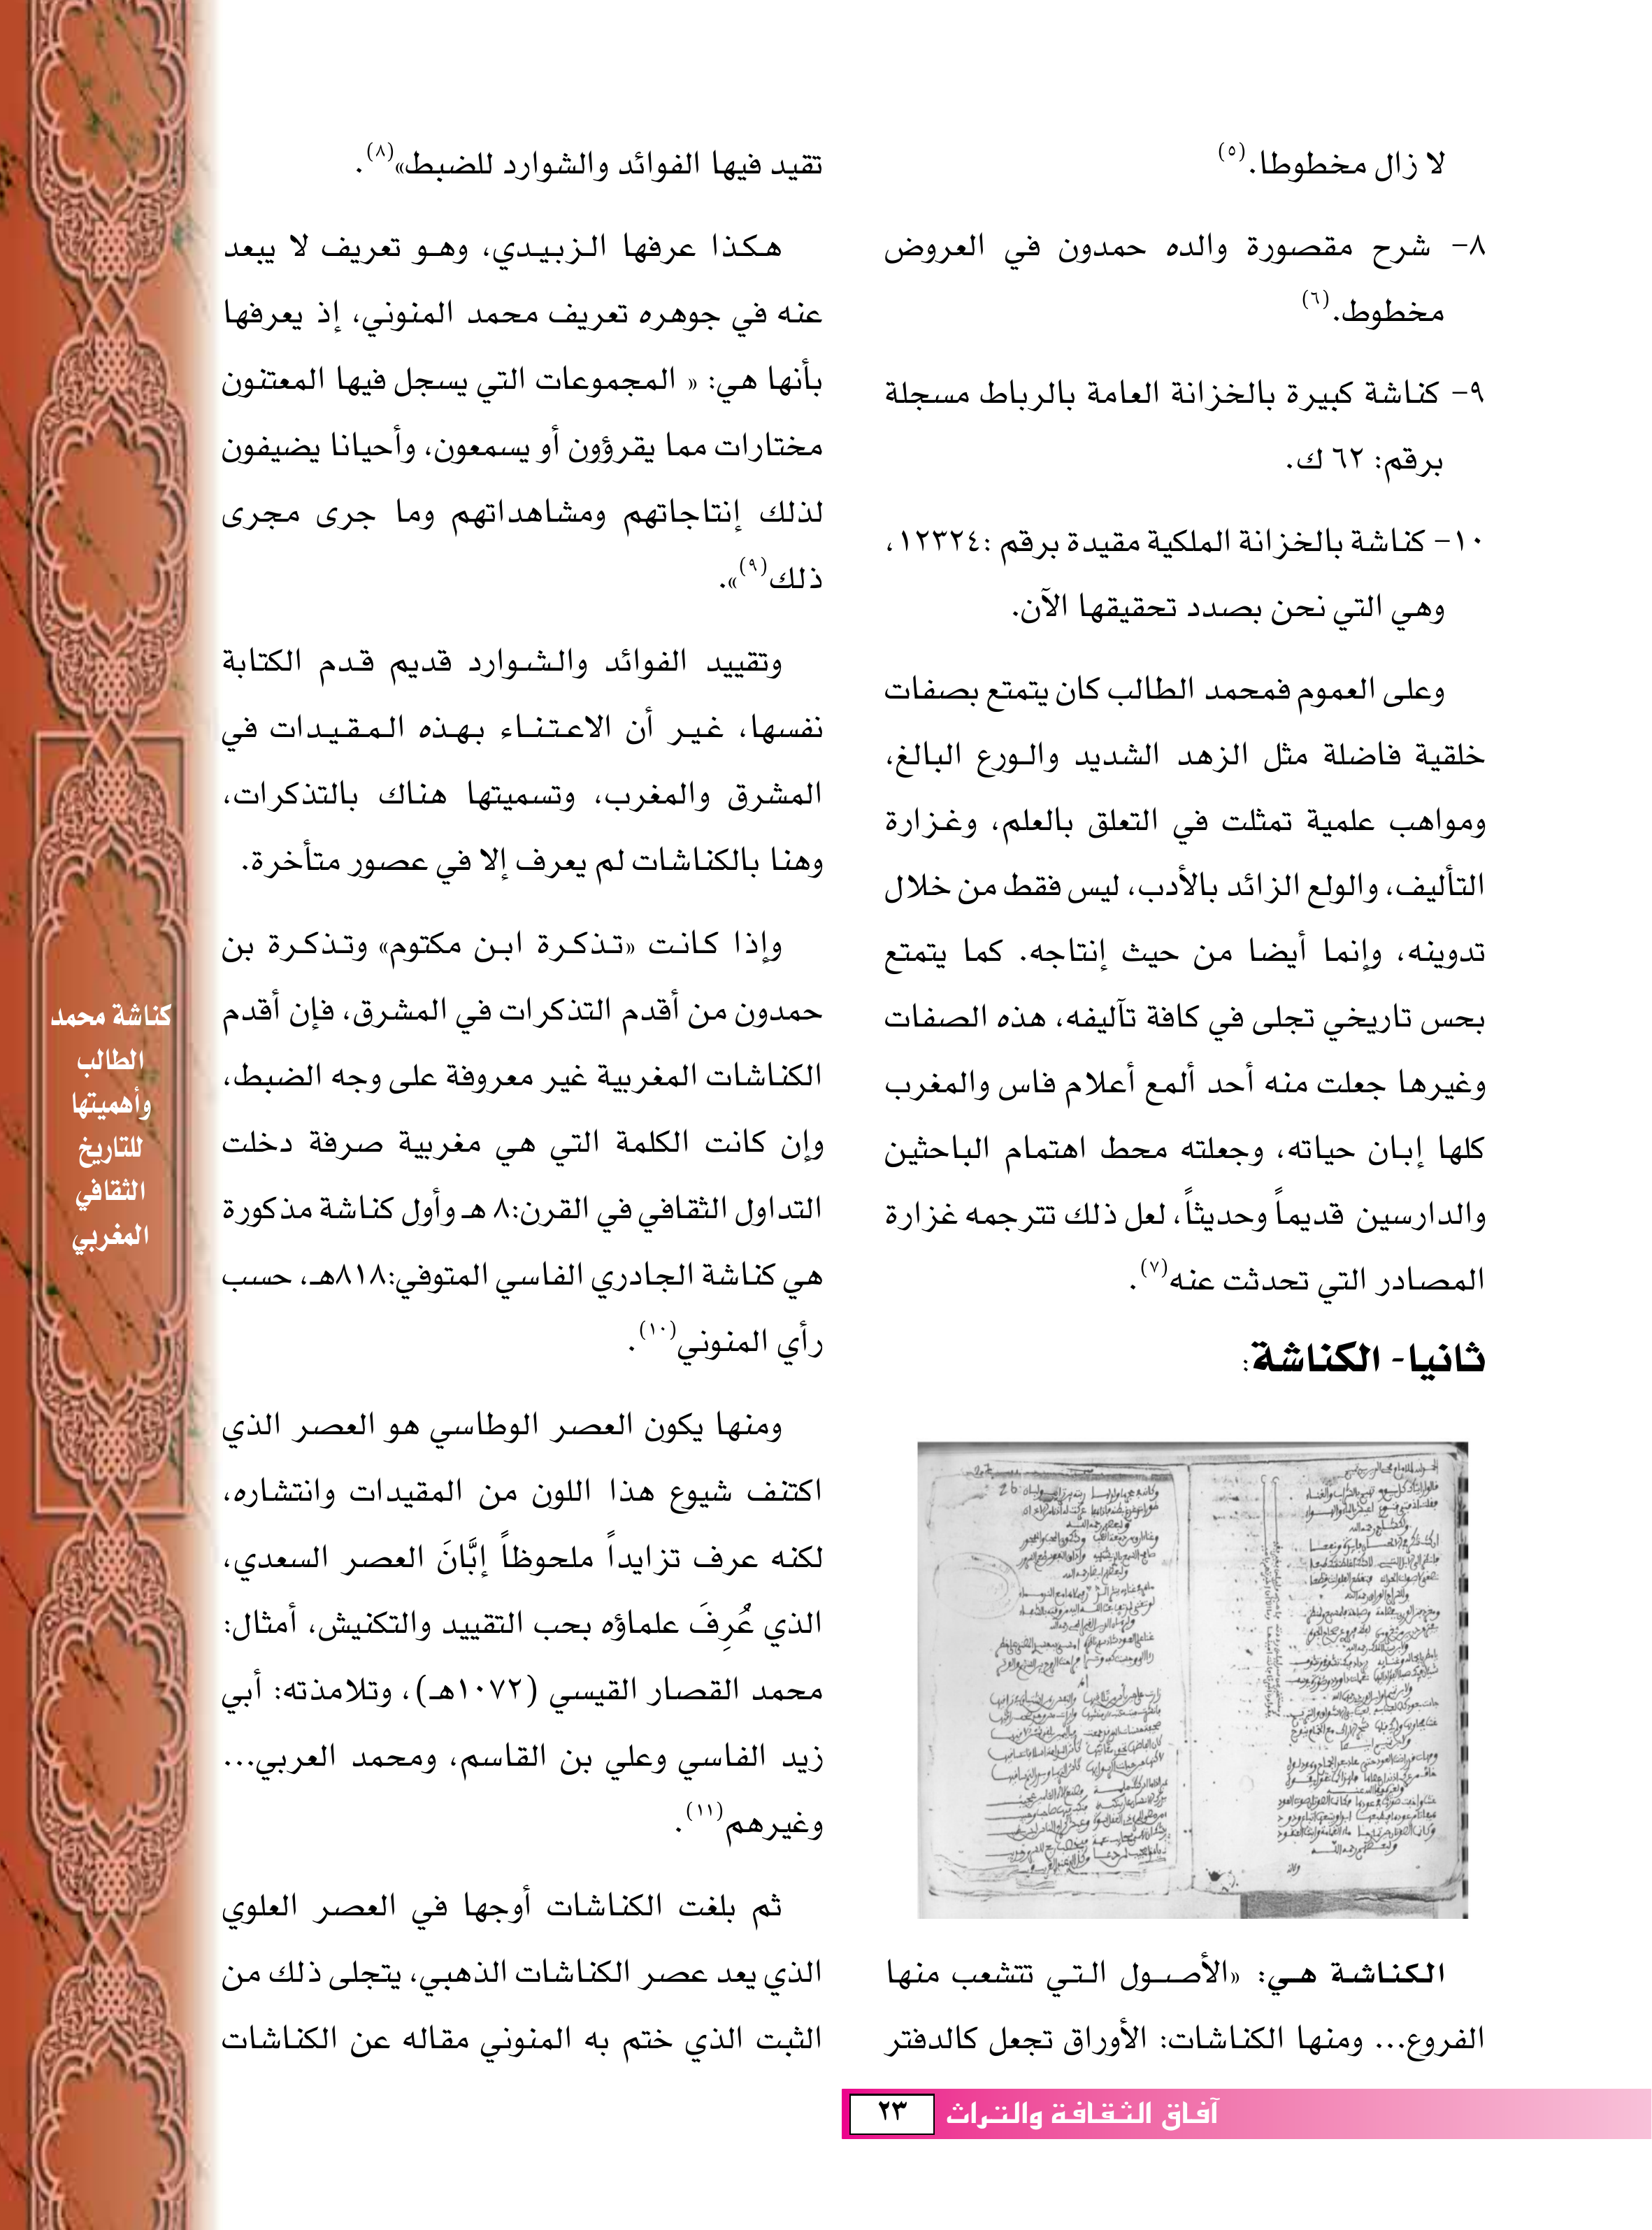 لا زال مخطوطا.(٥)
٨- شرح مقصورة والده حمدون في العروض
مخطوط.(٦)
٩- كناشة كبيرة بالخزانة العامة بالرباط مسجلة
برقم: ٦٢ ك.
١٠- كناشة بالخزانة الملكية مقيدة برقم :١٢٣٢٤،
وهي التي نحن بصدد تحقيقها الآن.
وعلى العموم فمحمد الطالب كان يتمتع بصفات
خلقية فاضلة مثل الزهد الشديد والورع البالغ،
ومواهب علمية تمثلت في التعلق بالعلم، وغزارة
التأليف، والولع الزائد بالأدب، ليس فقط من خلال
تدوينه، وإنما أيضا من حيث إنتاجه. كما يتمتع
بحس تاريخي تجلى في كافة تآليفه، هذه الصفات
وغيرها جعلت منه أحد ألمع أعلام فاس والمغرب
كلها إبان حياته، وجعلته محط اهتمام الباحثين
والدارسين قديماً وحديثاً، لعل ذلك تترجمه غزارة
المصادر التي تحدثت عنه(٧).
ثانيا- الكناشة:
الكناشة هي: «الأصول التي تتشعب منها
الفروع... ومنها الكناشات: الأوراق تجعل كالدفتر
تقيد فيها الفوائد والشوارد للضبط»(٨).
هكذا عرفها الزبيدي، وهو تعريف لا يبعد
عنه في جوهره تعريف محمد المنوني، إذ يعرفها
بأنها هي: « المجموعات التي يسجل فيها المعتنون
مختارات مما يقرؤون أو يسمعون، وأحيانا يضيفون
لذلك إنتاجاتهم ومشاهداتهم وما جرى مجرى
ذلك(٩)».
وتقييد الفوائد والشوارد قديم قدم الكتابة
نفسها، غير أن الاعتناء بهذه المقيدات في
المشرق والمغرب، وتسميتها هناك بالتذكرات،
وهنا بالكناشات لم يعرف إلا في عصور متأخرة.
وإذا كانت «تذكرة ابن مكتوم» وتذكرة بن
حمدون من أقدم التذكرات في المشرق، فإن أقدم
الكناشات المغربية غير معروفة على وجه الضبط،
وإن كانت الكلمة التي هي مغربية صرفة دخلت
التداول الثقافي في القرن:٨ هـ وأول كناشة مذكورة
هي كناشة الجادري الفاسي المتوفي:٨١٨هـ، حسب
رأي المنوني(١٠).
ومنها يكون العصر الوطاسي هو العصر الذي
اكتنف شيوع هذا اللون من المقيدات وانتشاره،
لكنه عرف تزايداً ملحوظاً إبَّانَ العصر السعدي،
الذي عُرِفَ علماؤه بحب التقييد والتكنيش، أمثال:
محمد القصار القيسي (١٠٧٢هـ)، وتلامذته: أبي
زيد الفاسي وعلي بن القاسم، ومحمد العربي...
وغيرهم(١١).
ثم بلغت الكناشات أوجها في العصر العلوي
الذي يعد عصر الكناشات الذهبي، يتجلى ذلك من
الثبت الذي ختم به المنوني مقاله عن الكناشات
كناشة محمد
الطالب
وأهميتها
للتاريخ
الثقافي
المغربي
آفاق الثقافة والتراث ٢٣